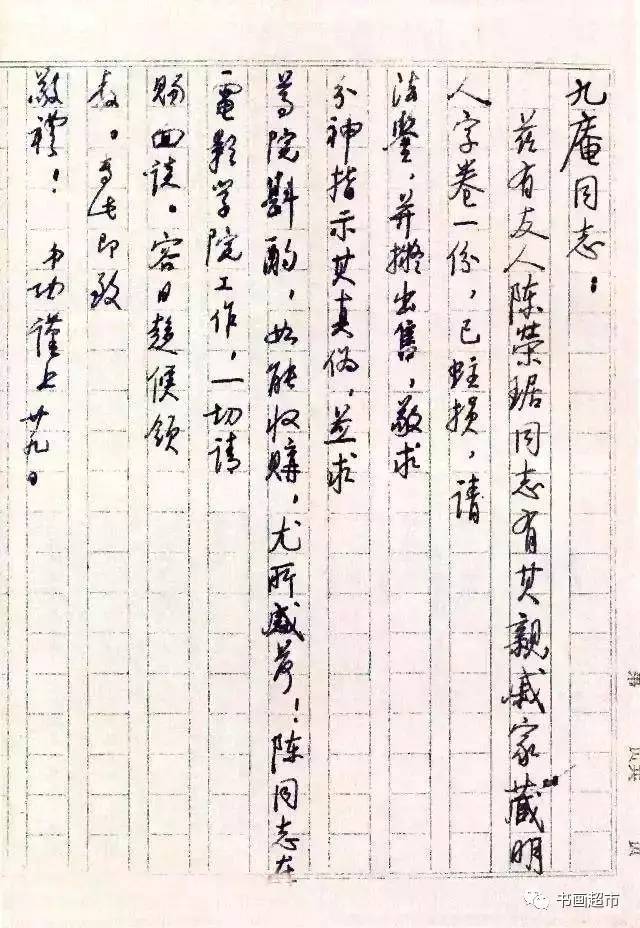 九庵同志：
兹有友人陈荣琚同志有其親戚家藏明
人字卷一份，已蛀损，请
法鉴，并擬出售，敬求
分神指示其真偽，并求
尊院斟酌，如能收購，尤所感荷！陈同志在
電影学院工作，一切请
赐面谈。容日趋候领
教。专此即致
敬禮！ 功謹上 廿九日
第 页共 页
书画超市